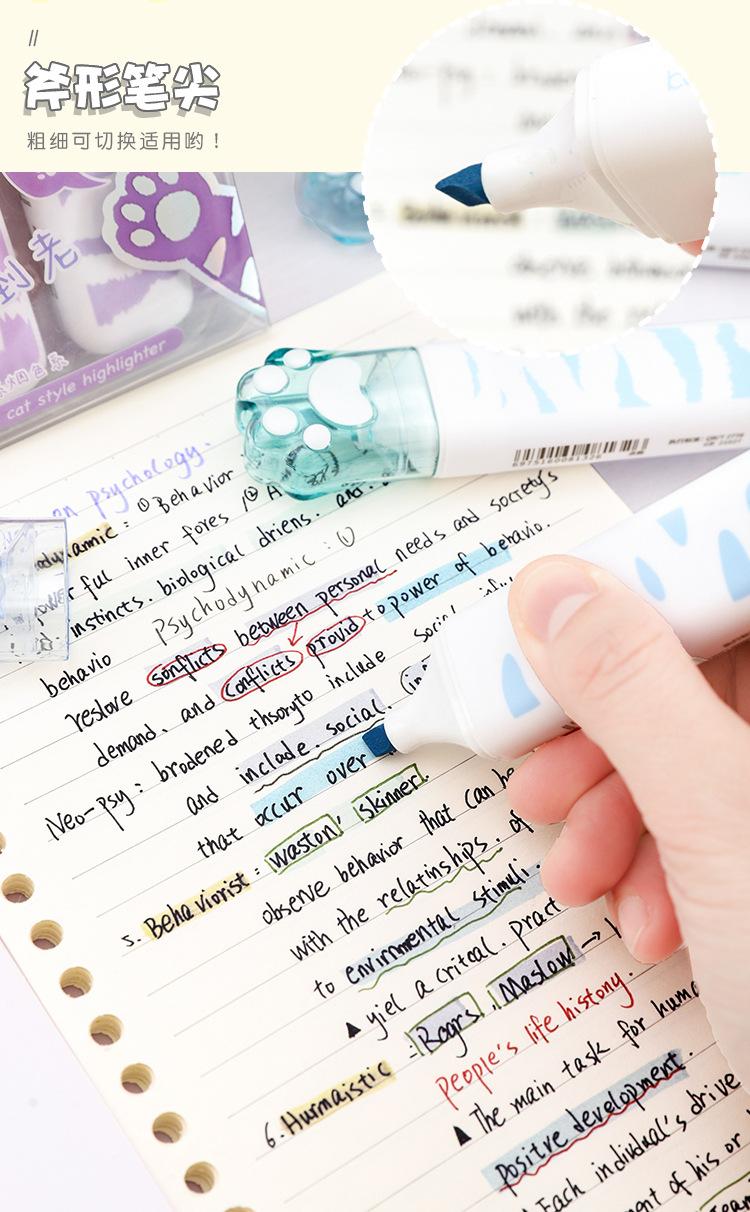 //
斧形笔尖
粗细可切换适用哟！
到老
烟色系
cat style highlighter
6975160081326
on psychology.
odynamic : ① Behavior
powerful inner fores , ② A
instincts. biological driens. and.
behavio psychodynamic : ①
restove sonflicts between personal needs and socrety's
demand. and conflicts provid to power of behavio.
Neo-psy : brodened thsoryto include social infu
and include. social. (in
that occur over
waston' skinner.
5. Behaviorist : observe behavior that can be
with the relatinships. of
to envirmental stimuli.
▲ yiel a criteal. pract
6. Hurmaistic : Rogrs , Maslow →
people's life histony.
▲ The main task for huma
positve development.
▲ Each individual's drive
ment of his or